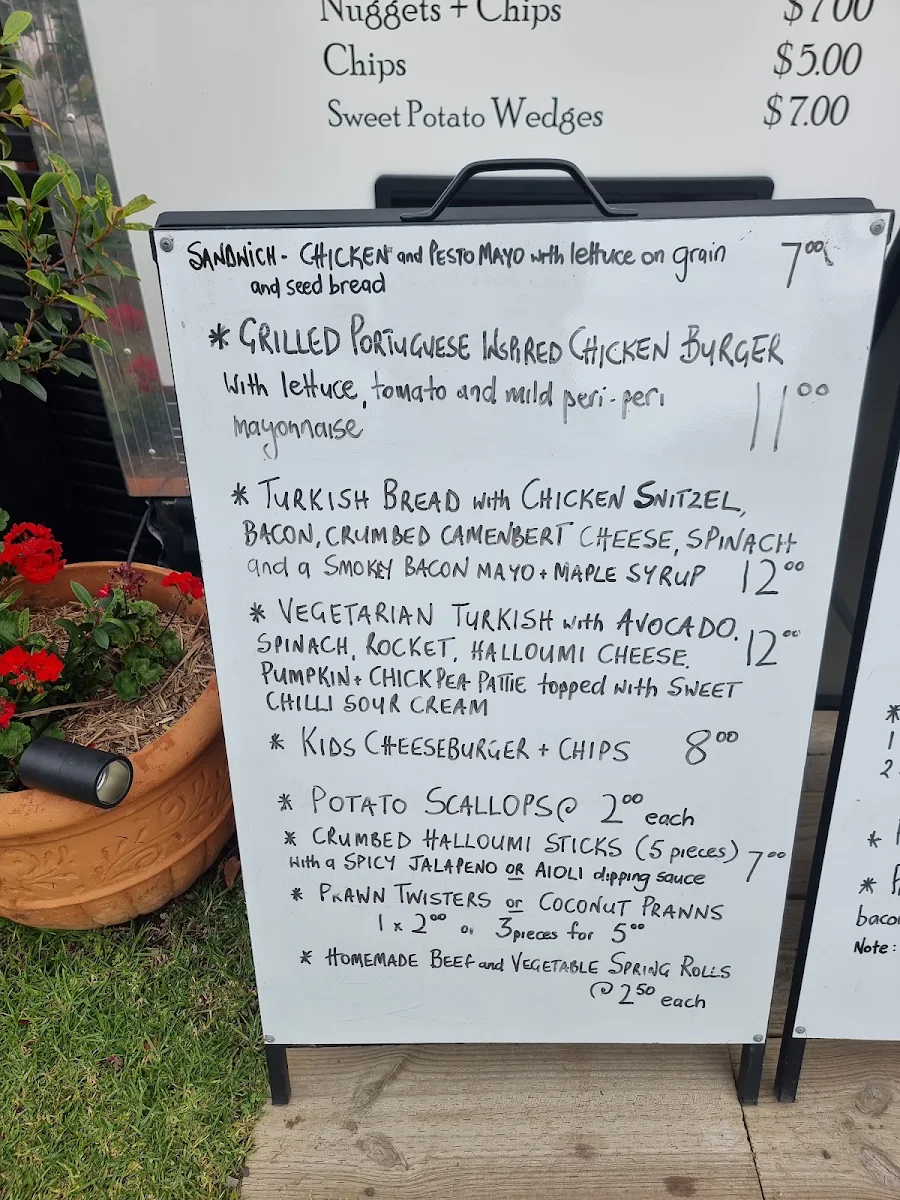 Nuggets + Chips $7.00
Chips $5.00
Sweet Potato Wedges $7.00
SANDWICH - CHICKEN and PESTO MAYO with lettuce on grain 7⁰⁰
and seed bread
* GRILLED PORTUGUESE INSPIRED CHICKEN BURGER
with lettuce, tomato and mild peri-peri 11⁰⁰
mayonnaise
* TURKISH BREAD with CHICKEN SNITZEL,
BACON, CRUMBED CAMENBERT CHEESE, SPINACH
and a SMOKEY BACON MAYO + MAPLE SYRUP 12⁰⁰
* VEGETARIAN TURKISH with AVOCADO,
SPINACH, ROCKET, HALLOUMI CHEESE, 12⁰⁰
PUMPKIN + CHICKPEA PATTIE topped with SWEET
CHILLI SOUR CREAM
* KIDS CHEESEBURGER + CHIPS 8⁰⁰
* POTATO SCALLOPS @ 2⁰⁰ each
* CRUMBED HALLOUMI STICKS (5 pieces) 7⁰⁰
with a SPICY JALAPENO OR AIOLI dipping sauce
* PRAWN TWISTERS or COCONUT PRAWNS
1 x 2⁰⁰ or 3 pieces for 5⁰⁰
* HOMEMADE BEEF and VEGETABLE SPRING ROLLS
@ 2⁵⁰ each
*
1
2
*
*
bacon
Note: